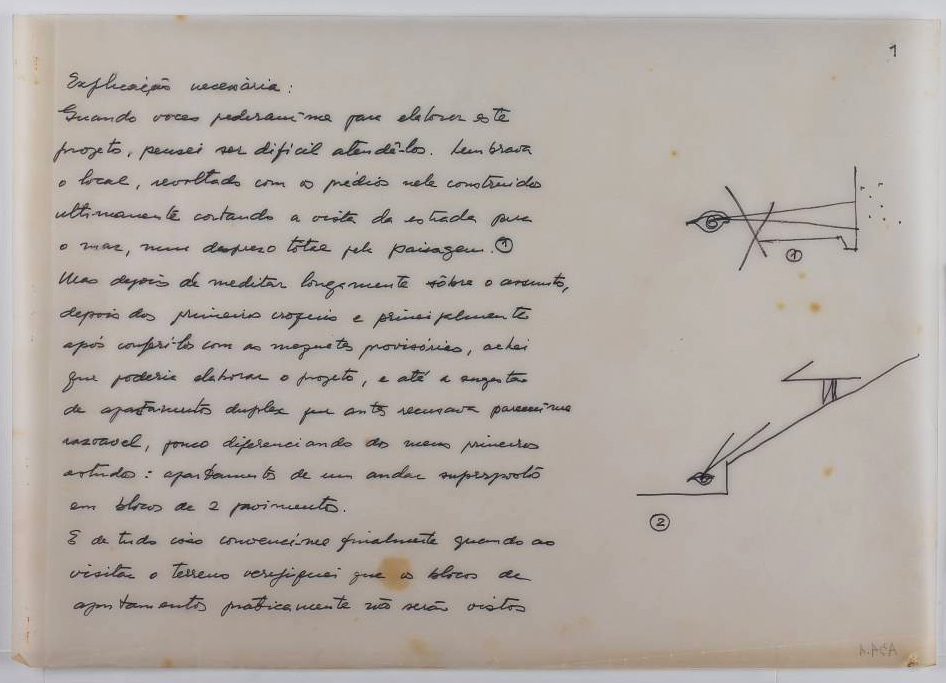 1
Explicação necessária:
Quando voces pediram-me para elaborar este
projeto, pensei ser difícil atendê-los. Lembrava
o local, revoltado com os prédios nele construidos
ultimamente cortando a vista da estrada para
o mar, num desprezo total pela paisagem. 1
Mas depois de meditar longamente sôbre o assunto,
depois dos primeiros croquis e principalmente
após conferi-los com as maquetes provisórias, achei
que poderia elaborar o projeto, e até a sugestão
de apartamentos duplex que antes recusava pareceu-me
razoavel, pouco diferenciando dos meus primeiros
estudos: apartamentos de um andar superpostos
em blocos de 2 pavimentos.
E de tudo isso convenci-me finalmente quando ao
visitar o terreno verifiquei que os blocos de
apartamentos praticamente não serão vistos
1
2